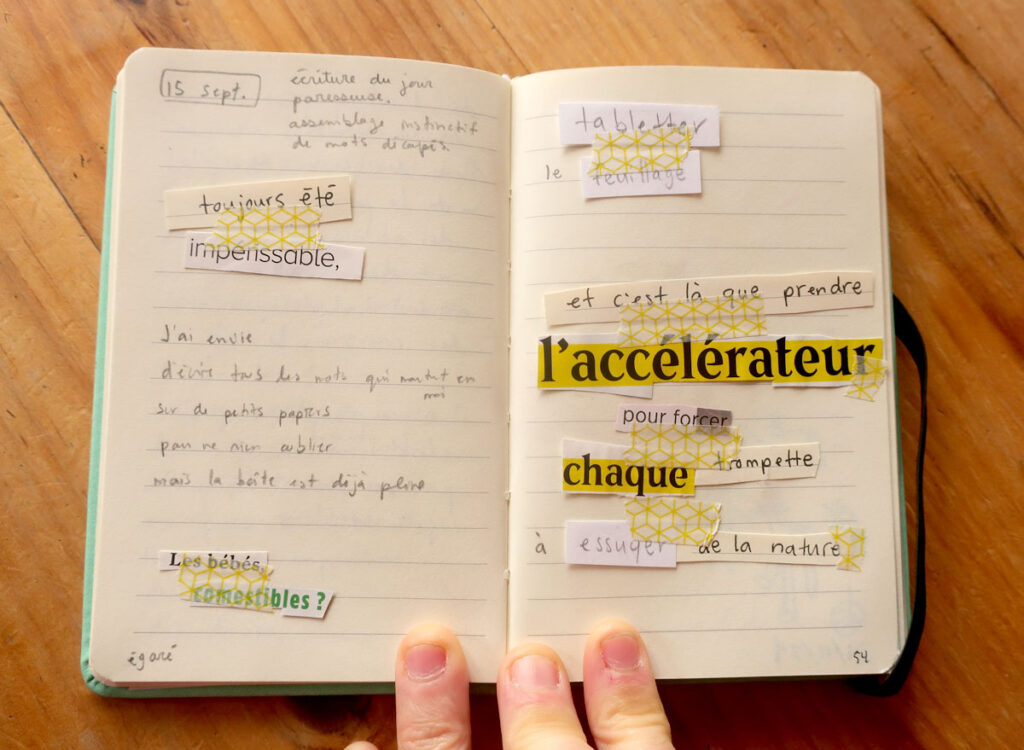 15 sept.
écriture du jour
paresseuse.
assemblage instinctif
de mots découpés.
toujours été
impérissable,
J'ai envie
d'écrire tous les mots qui montent en
moi
sur de petits papiers
pour ne rien oublier
mais la boîte est déjà pleine
Les bébés,
comestibles ?
égaré
tabletter
le feuillage
et c'est là que prendre
l'accélérateur
pour forcer
chaque trompette
à essuyer de la nature
54